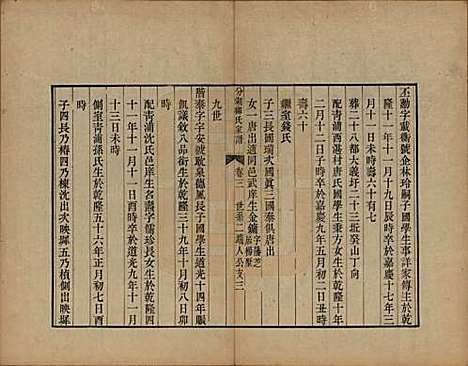 丕勳字載衡號企林玲嗣子國學生事詳家傳生於乾
隆十一年十一月十九日辰時卒於嘉慶十七年三
月十一日未時壽六十有七
墓二十八都大義圩二十三坵癸山丁向
配青浦西湛村唐氏國學生秉方女生於乾隆十年
二月十二日亥時卒於嘉慶九年五月初二日丑時
壽六十
繼室錢氏
子三長國瑞次國眞三國泰俱唐出
女一唐出適同邑武庠生金鑣
分湖柳氏家譜 卷三 世系二 三
九世
階泰字字安號 泉德鳳長子國學生道光十四年賑
飢議敘八品銜生於乾隆三十九年十月初八日卯
時
配青浦沈氏邑庠生名 字儒珍長女生於乾隆四
十一年十一月十一日酉時卒於道光九年十一月
十三日未時
側室青浦孫氏生於乾隆五十六年正月初七日酉
時
子四長乃椿四乃棟沈出次映墀五乃楨側出映墀